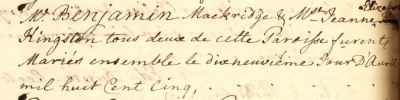 Mr. Benjamin Mackredge & Mslle Jeanne
Kingston tous deux de cette Paroisse furent
Mariés ensemble le dixneuvieme Jour D'Avril
mil huit Cent Cinq,